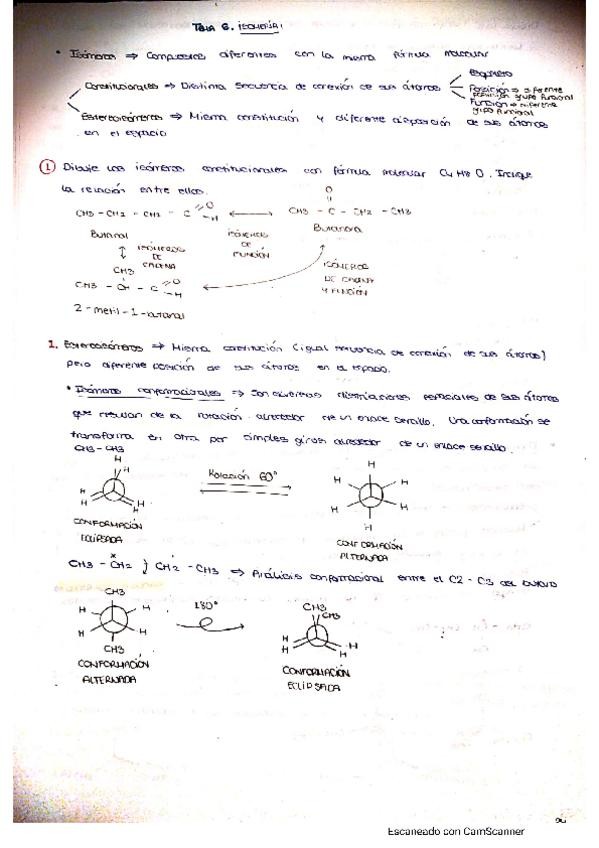 TEMA 6. ISOMERÍA
• Isómeros ⇒ Compuestos diferentes con la misma fórmula molecular
Esqueleto
Constitucionales ⇒ Distinta secuencia de conexión de sus átomos
Posición ⇒ diferente
posición grupo funcional
Función ⇒ diferente
grupo funcional
Estereoisómeros ⇒ Misma constitución y diferente disposición de sus átomos
en el espacio
① Dibuje los isómeros constitucionales con fórmula molecular C4H8O. Indique
la relación entre ellos.
O
CH3 - CH2 - CH2 - C =O
-H
CH3 - C - CH2 - CH3
Butanal
Butanona
ISÓMEROS
DE
CADENA
ISÓMEROS
DE
FUNCIÓN
ISÓMEROS
DE CADENA
Y FUNCIÓN
CH3
CH3 - CH - C =O
-H
2-metil-1-butanal
1. Estereoisómeros ⇒ Misma constitución (igual secuencia de conexión de sus átomos)
pero diferente posición de sus átomos en el espacio.
• Isómeros conformacionales ⇒ Son diversas disposiciones espaciales de sus átomos
que resultan de la rotación alrededor de un enlace sencillo. Una conformación se
transforma en otra por simples giros alrededor de un enlace sencillo.
CH3-CH3
H
H
H
H
H
H
Rotación 60°
H
H
H
H
H
H
CONFORMACIÓN
ECLIPSADA
CONFORMACIÓN
ALTERNADA
CH3 - CH2 } CH2 - CH3 ⇒ Análisis conformacional entre el C2-C3 del butano
CH3
H
H
H
H
CH3
180°
CH3
CH3
H
H
H
H
CONFORMACIÓN
ALTERNADA
CONFORMACIÓN
ECLIPSADA
Escaneado con CamScanner